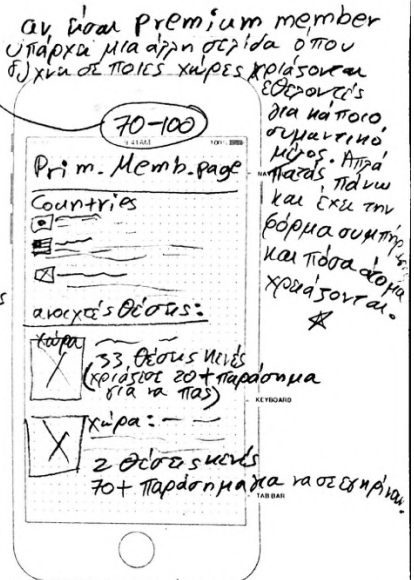 αν είσαι premium member
υπάρχει μια άλλη σελίδα όπου
δίχνει σε ποιες χώρες χριάζονται
εθελοντές
για κάποιο
συμαντικό
μέρος. Απλά
πατάς πάνω
και έχει την
φόρμα συμπλήρ
και πόσα άτομα
χρειάζονται.
70-100
9:41 AM
100%
Prim. Memb. page
Countries
ανοιχτές θέσεις:
χώρα
33 θέσεις κενές
(χριάζεσε 20+ παράσημα
για να πας)
KEYBOARD
χώρα:
2 θέσεις κενές
70+ παράσημα για να σε εγκρίνουν.
TAB BAR